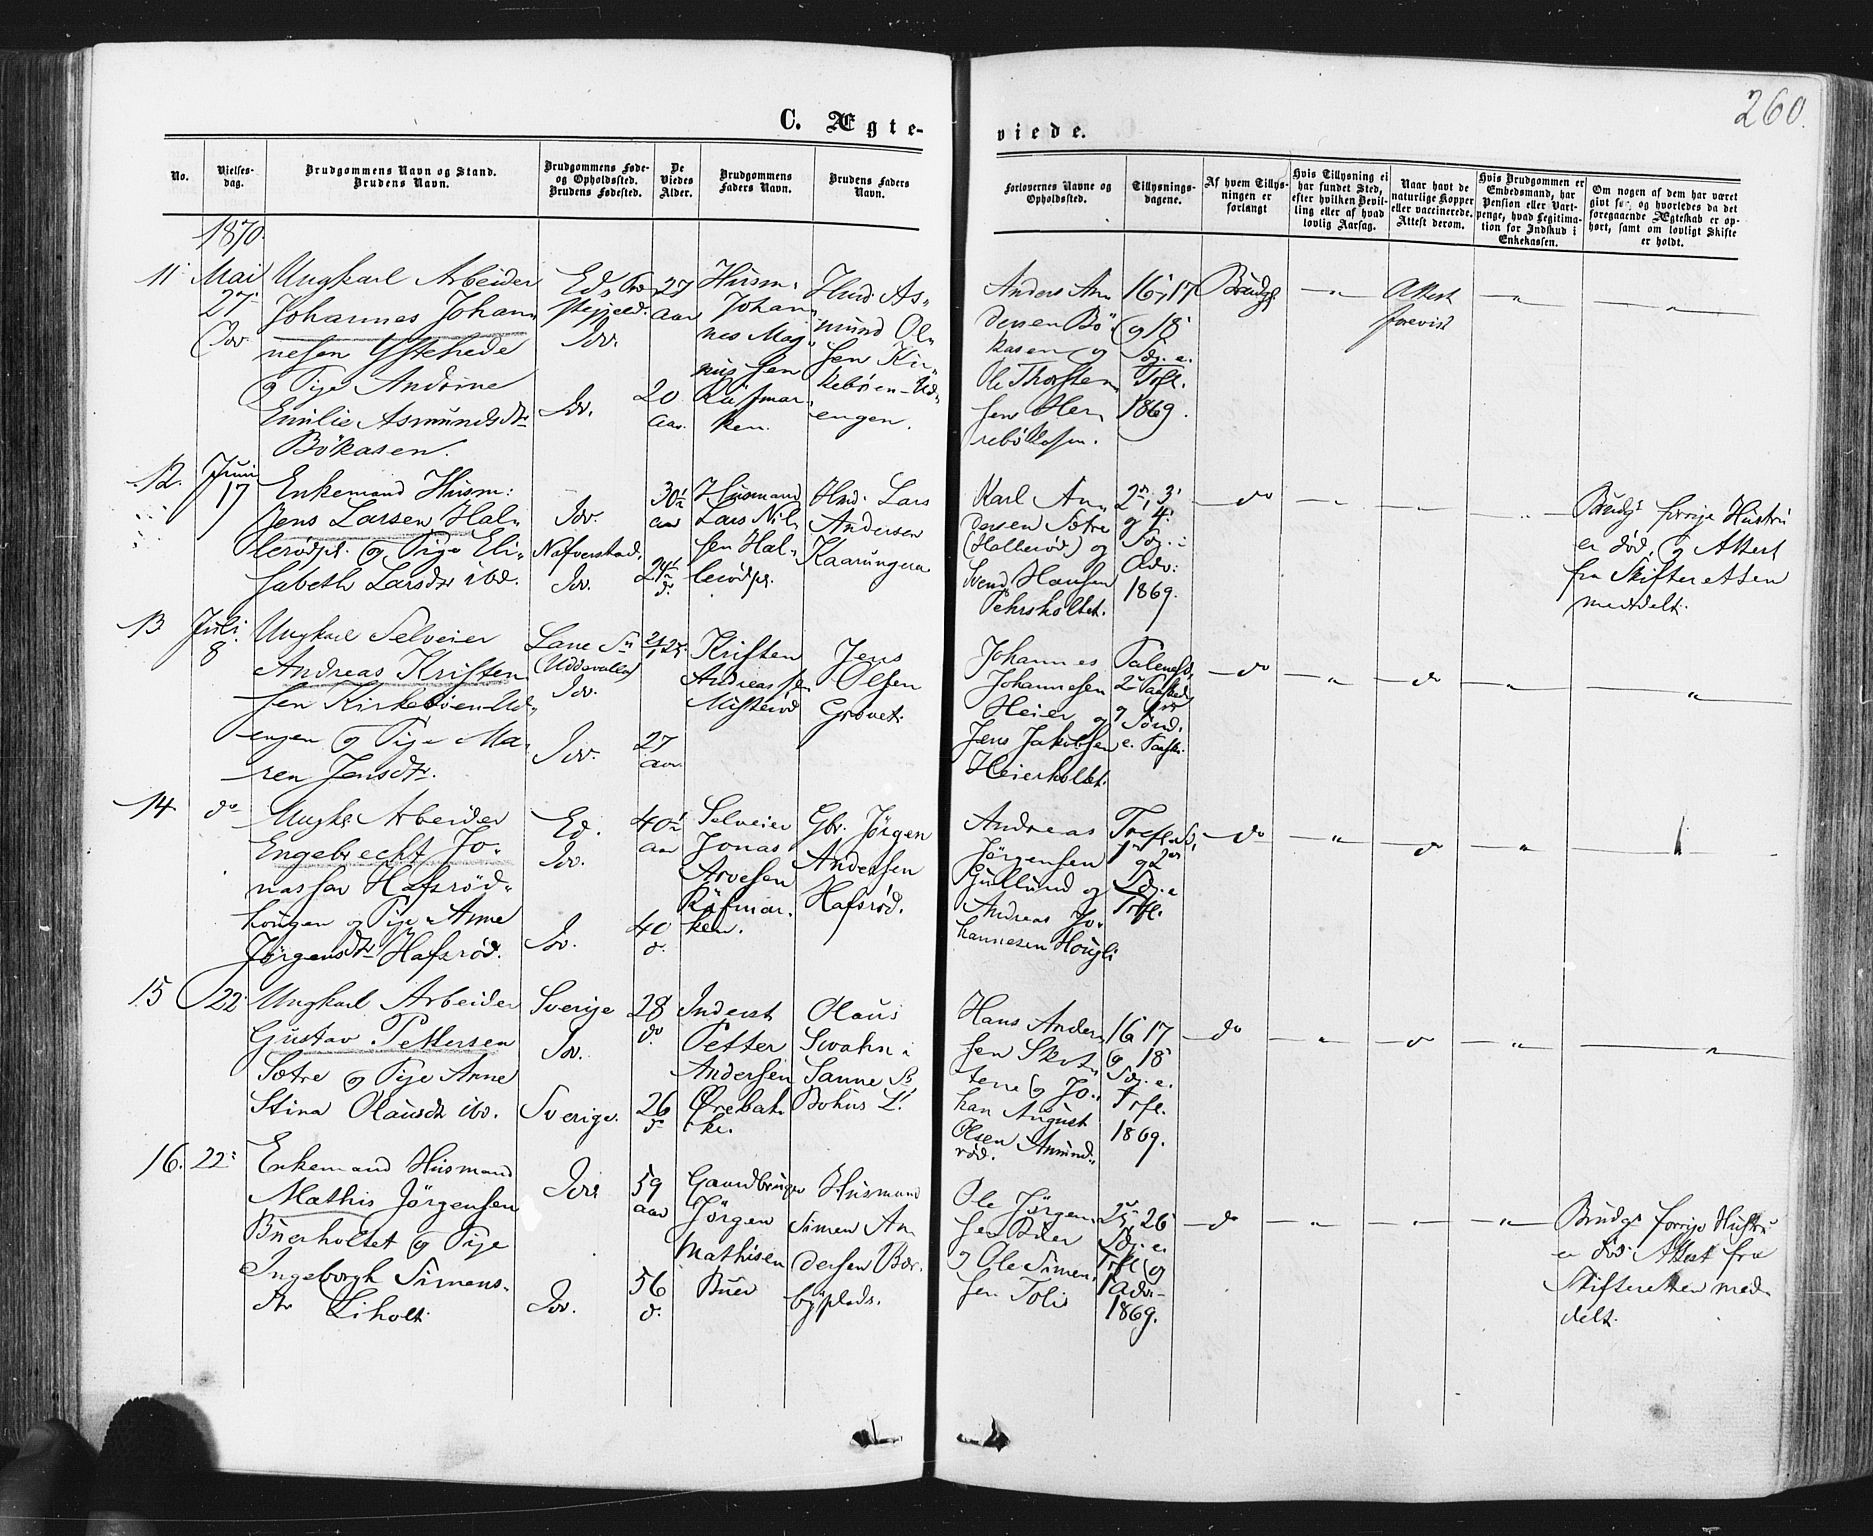 260.
C. Ægte-
viede.
No.
Vielses-
dag.
Brudgommens Navn og Stand.
Brudens Navn.
Brudgommens Føde-
og Opholdssted.
Brudens Fødested.
De
Viedes
Alder.
Brudgommens
Faders Navn.
Brudens Faders
Navn.
Forlovernes Navne og
Opholdssted.
Tillysnings-
dagene.
Af hvem Tillys-
ningen er
forlangt
Hvis Tillysning ei
har fundet Sted,
efter hvilken Bevil-
ling eller af hvad
lovlig Aarsag.
Naar havt de
naturlige Kopper
eller vaccinerede.
Attest derom.
Hvis Brudgommen er
Embedsmand, har
Pension eller Vart-
penge, hvad Legitima-
tion for Indskud i
Enkekassen.
Om nogen af dem har været
gift før, og hvorledes da det
foregaaende Ægteskab er op-
hørt, samt om lovligt Skifte
er holdt.
1870.
11
Mai
27
Idv.
Ungkarl Arbeider
Johannes Johan-
nesen Ystehede
og Pige Andrine
Emilie Asmundsdtr
Bökasen.
Ed
Idv.
Idv.
27
aar
20
aar.
Husm:
Johan-
nes Mag-
nussen
ken.
As-
mund Ol-
sen Kir-
kebøen-Ud-
engen.
Anders An-
dersen Bö-
kasen og
Ole Thorsten-
sen Her-
16, 17
og 18
Søg. e.
Trfl.
1869.
Brudg.
"
Attest
forevist
"
"
12.
Juni
17
Enkemand Husm:
Jens Larsen Hal-
lerødpl. og Pige Eli-
sabeth Larsdtr ibd.
Idv.
Nafverstad.
Idv.
30½
aar
24½
d.
Husmand
Lars Nil-
sen Hal-
lerødpl.
Lars
Andersen
Kaarungern
Karl An-
dersen Sötre
(Hallerød) og
Svend Hansen
Pehrsholtet.
2', 3'
og 4'
Søg. i
Adv:
1869.
do
"
"
"
Brudgs forrige Hustru
er død, og Attest
fra Skifteretten
meddelt.
13
Juli
8
Ungkarl Selveier
Andreas Kristen-
sen Kirkebøen-Ud-
engen og Pige Ma-
ren Jensdtr.
Lane Sn
(Uddevalla)
Idv.
Idv.
27
aar.
Kristen
Andreassen
Jens
Olsen
Grovet.
Johannes
Johannesen
Heier og
Jens Jakobsen
Heierholtet.
Palmesd,
og
do
"
do
"
"
14
do
Ungk. Arbeider
Engebrecht Jo-
nassen Hafsrød-
hougen og Pige Anne
Jørgensdtr Hafsrød.
Ed.
Idv.
Idv.
40½
aar
40
d.
Selveier
Jonas
Arvesen
ken.
Gbr. Jørgen
Andersen
Hafsrød.
Andreas
Jørgensen
Gullund og
Andreas Jo-
hannesen Hougli
og 2den
Søg. e
Trfl.
do
"
do
"
15
22
Ungkarl Arbeider
Gustav Pettersen
Sötre og Pige Anne
Stina Olausdtr ibd.
Sverige
Idv.
Sverige.
28
do
26
d.
Inderst
Petter
Andersen
Ørebak-
ke.
Olaus
Swahn i
Sanne Sn
Bohus L.
Hans Ander-
sen Skot-
tene og Jo-
han August
Olsen Amund-
rød.
16 17
og 18
Søg. e.
Trfl.
1869.
do
"
do
"
"
16.
22
Enkemand Husmand
Mathis Jörgensen
Buerholtet og Pige
Ingeborgh Simens-
dtr Liholt.
Idv.
Idv.
59
aar
56
d.
Gaardbruger
Jörgen
Mathisen
Buer
Husmand
Simen An-
dersen Bør-
byplads.
Ole Jörgen-
sen Buer
og Ole Simen-
sen Tolis
25, 26
Søg. e
Trfl og
1 Adv.
1869.
do
"
"
"
Brudgs forrige Hustru
er død. Attest fra
Skifteretten med-
delt.